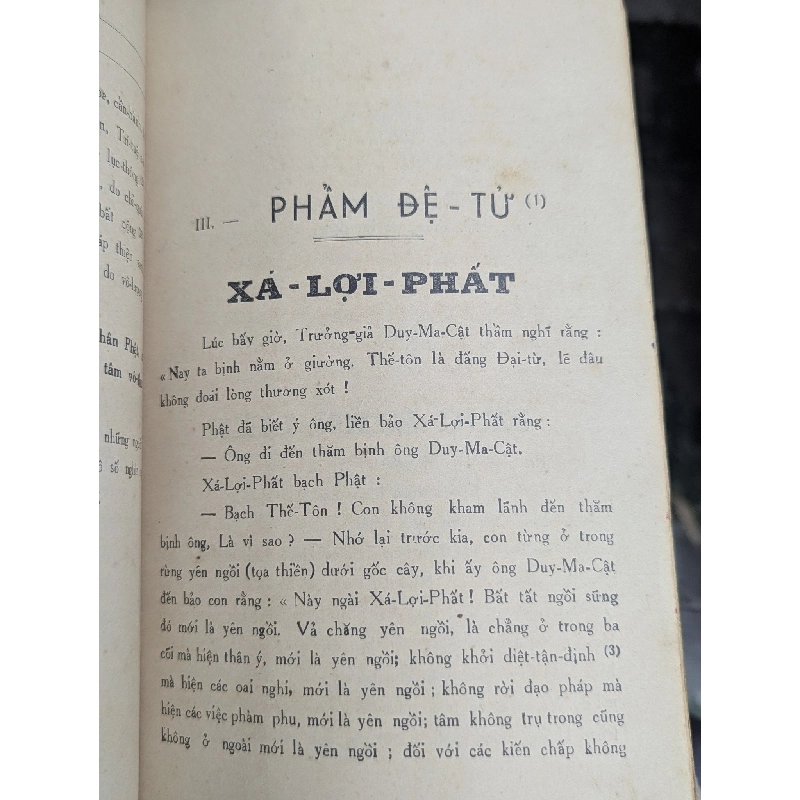 III. — PHẨM ĐỆ-TỬ (1)
XÁ-LỢI-PHẤT
Lúc bấy giờ, Trưởng-giả Duy-Ma-Cật thầm nghĩ rằng :
« Nay ta bịnh nằm ở giường. Thế-tôn là đấng Đại-từ, lẽ đâu
không đoái lòng thương xót !
Phật đã biết ý ông, liền bảo Xá-Lợi-Phất rằng :
— Ông đi đến thăm bịnh ông Duy-Ma-Cật.
Xá-Lợi-Phất bạch Phật :
— Bạch Thế-Tôn ! Con không kham lãnh đến thăm
bịnh ông, Là vì sao ? — Nhớ lại trước kia, con từng ở trong
rừng yên ngồi (tọa thiền) dưới gốc cây, khi ấy ông Duy-Ma-Cật
đến bảo con rằng : « Này ngài Xá-Lợi-Phất ! Bất tất ngồi sững
đó mới là yên ngồi. Vả chăng yên ngồi, là chẳng ở trong ba
cõi mà hiện thân ý, mới là yên ngồi; không khởi diệt-tận-định (3)
mà hiện các oai nghi, mới là yên ngồi ; không rời đạo pháp mà
hiện các việc phàm phu, mới là yên ngồi; tâm không trụ trong cũng
không ở ngoài mới là yên ngồi ; đối với các kiến chấp không
hân Phật
tâm vô-
những
số
do vô-
bất cộng
lục-thông